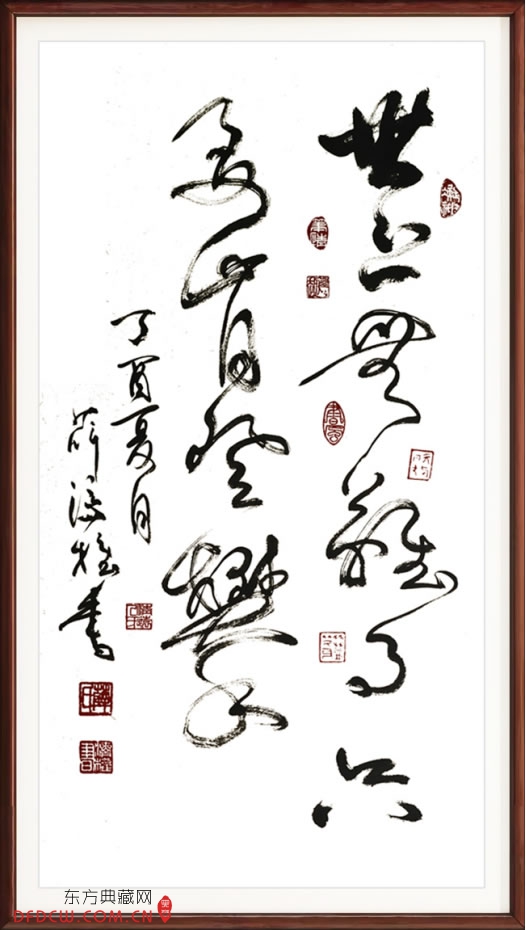 世上無難事只
要肯登攀
丁酉夏月
薛 書
东方典藏网
DFDCW.COM.CN